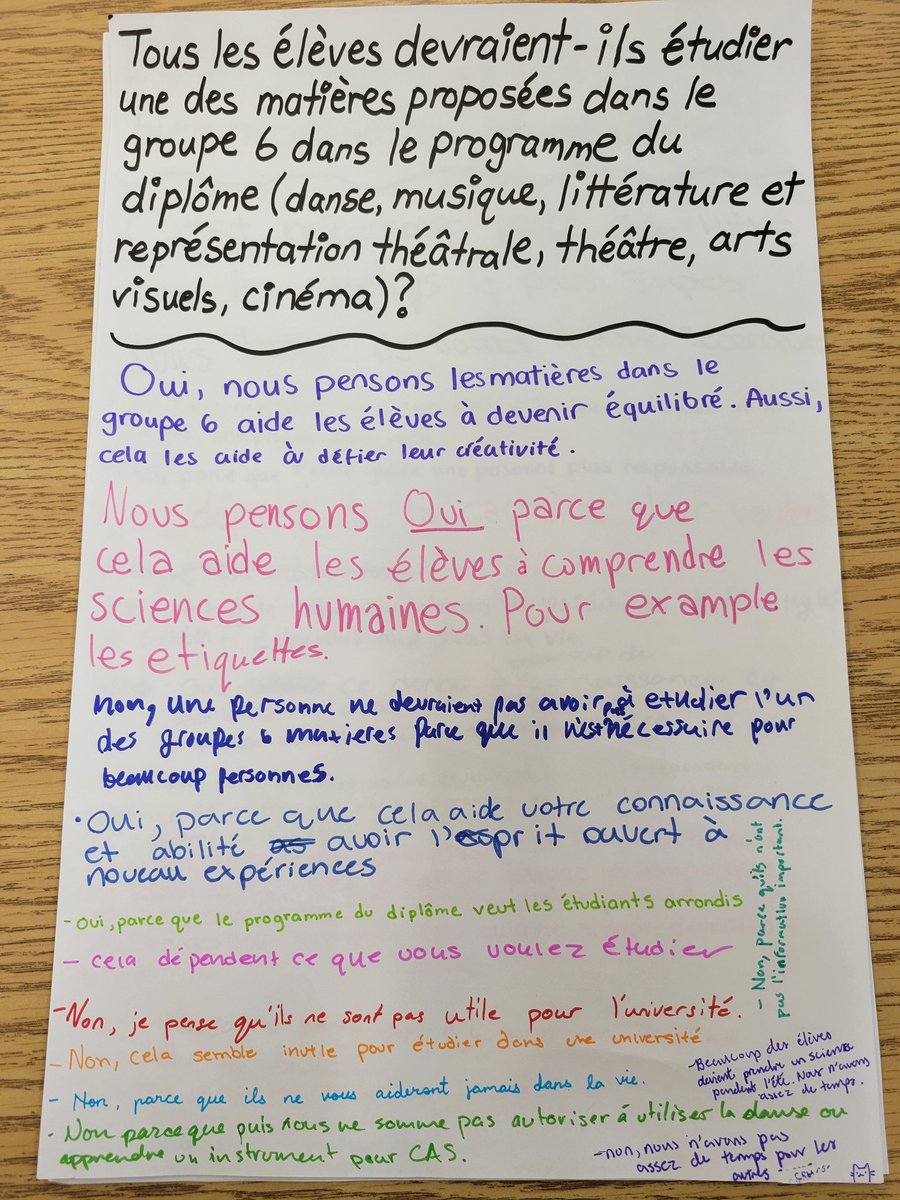 Tous les élèves devraient-ils étudier
une des matières proposées dans le
groupe 6 dans le programme du
diplôme (danse, musique, littérature et
représentation théâtrale, théâtre, arts
visuels, cinéma)?
Oui, nous pensons les matières dans le
groupe 6 aide les élèves à devenir équilibré. Aussi,
cela les aide à défier leur créativité.
Nous pensons Oui parce que
cela aide les élèves à comprendre les
sciences humaines. Pour example
les etiquettes.
Non, une personne ne devraient pas avoir à etudier l'un
des groupes 6 matieres parce que il n'est nécessaire pour
beaucoup personnes.
• Oui, parce que cela aide votre connaissance
et abilité avoir l'esprit ouvert à
nouveau expériences
- Oui, parce que le programme du diplôme veut les étudiants arrondis
- cela dépendent ce que vous voulez étudier
- Non, parce qu'ils n'ont
pas l'information important.
- Non, je pense qu'ils ne sont pas utile pour l'université.
- Non, cela semble inutile pour étudier dans une université
- Non, parce que ils ne vous aideront jamais dans la vie.
- Beaucoup des élèves
doivent prendre un science
pendant l'été. Nous n'avons
assez de temps.
• Non parce que puis nous ne somme pas autoriser à utiliser la danse ou
apprendre un instrument pour CAS.
- non, nous n'avons pas
assez de temps pour les
autres